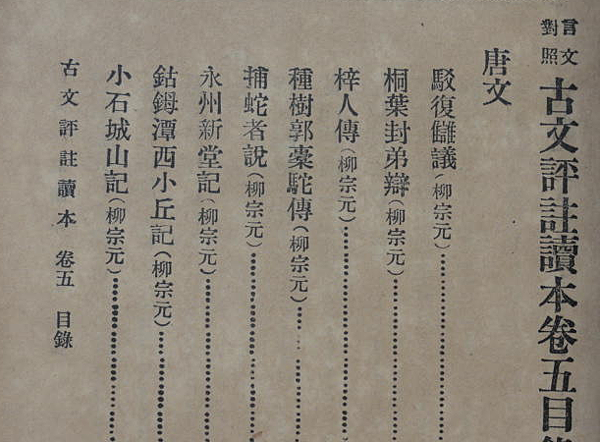 言文對照 古文評註讀本卷五目
唐文
駁復讎議(柳宗元)
桐葉封弟辯(柳宗元)
梓人傳(柳宗元)
種樹郭橐駝傳(柳宗元)
捕蛇者說(柳宗元)
永州新堂記(柳宗元)
鈷鉧潭西小丘記(柳宗元)
小石城山記(柳宗元)
古文評註讀本 卷五 目錄